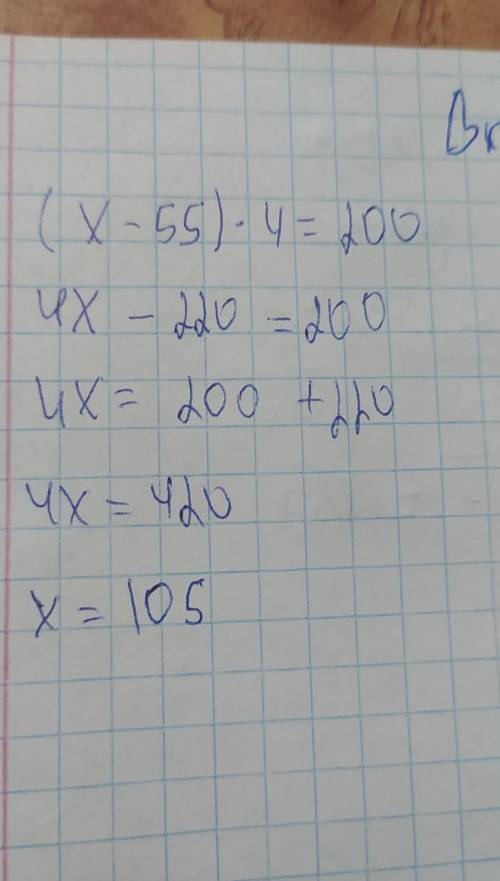 (x - 55) · 4 = 200
4x - 220 = 200
4x = 200 + 220
4x = 420
x = 105